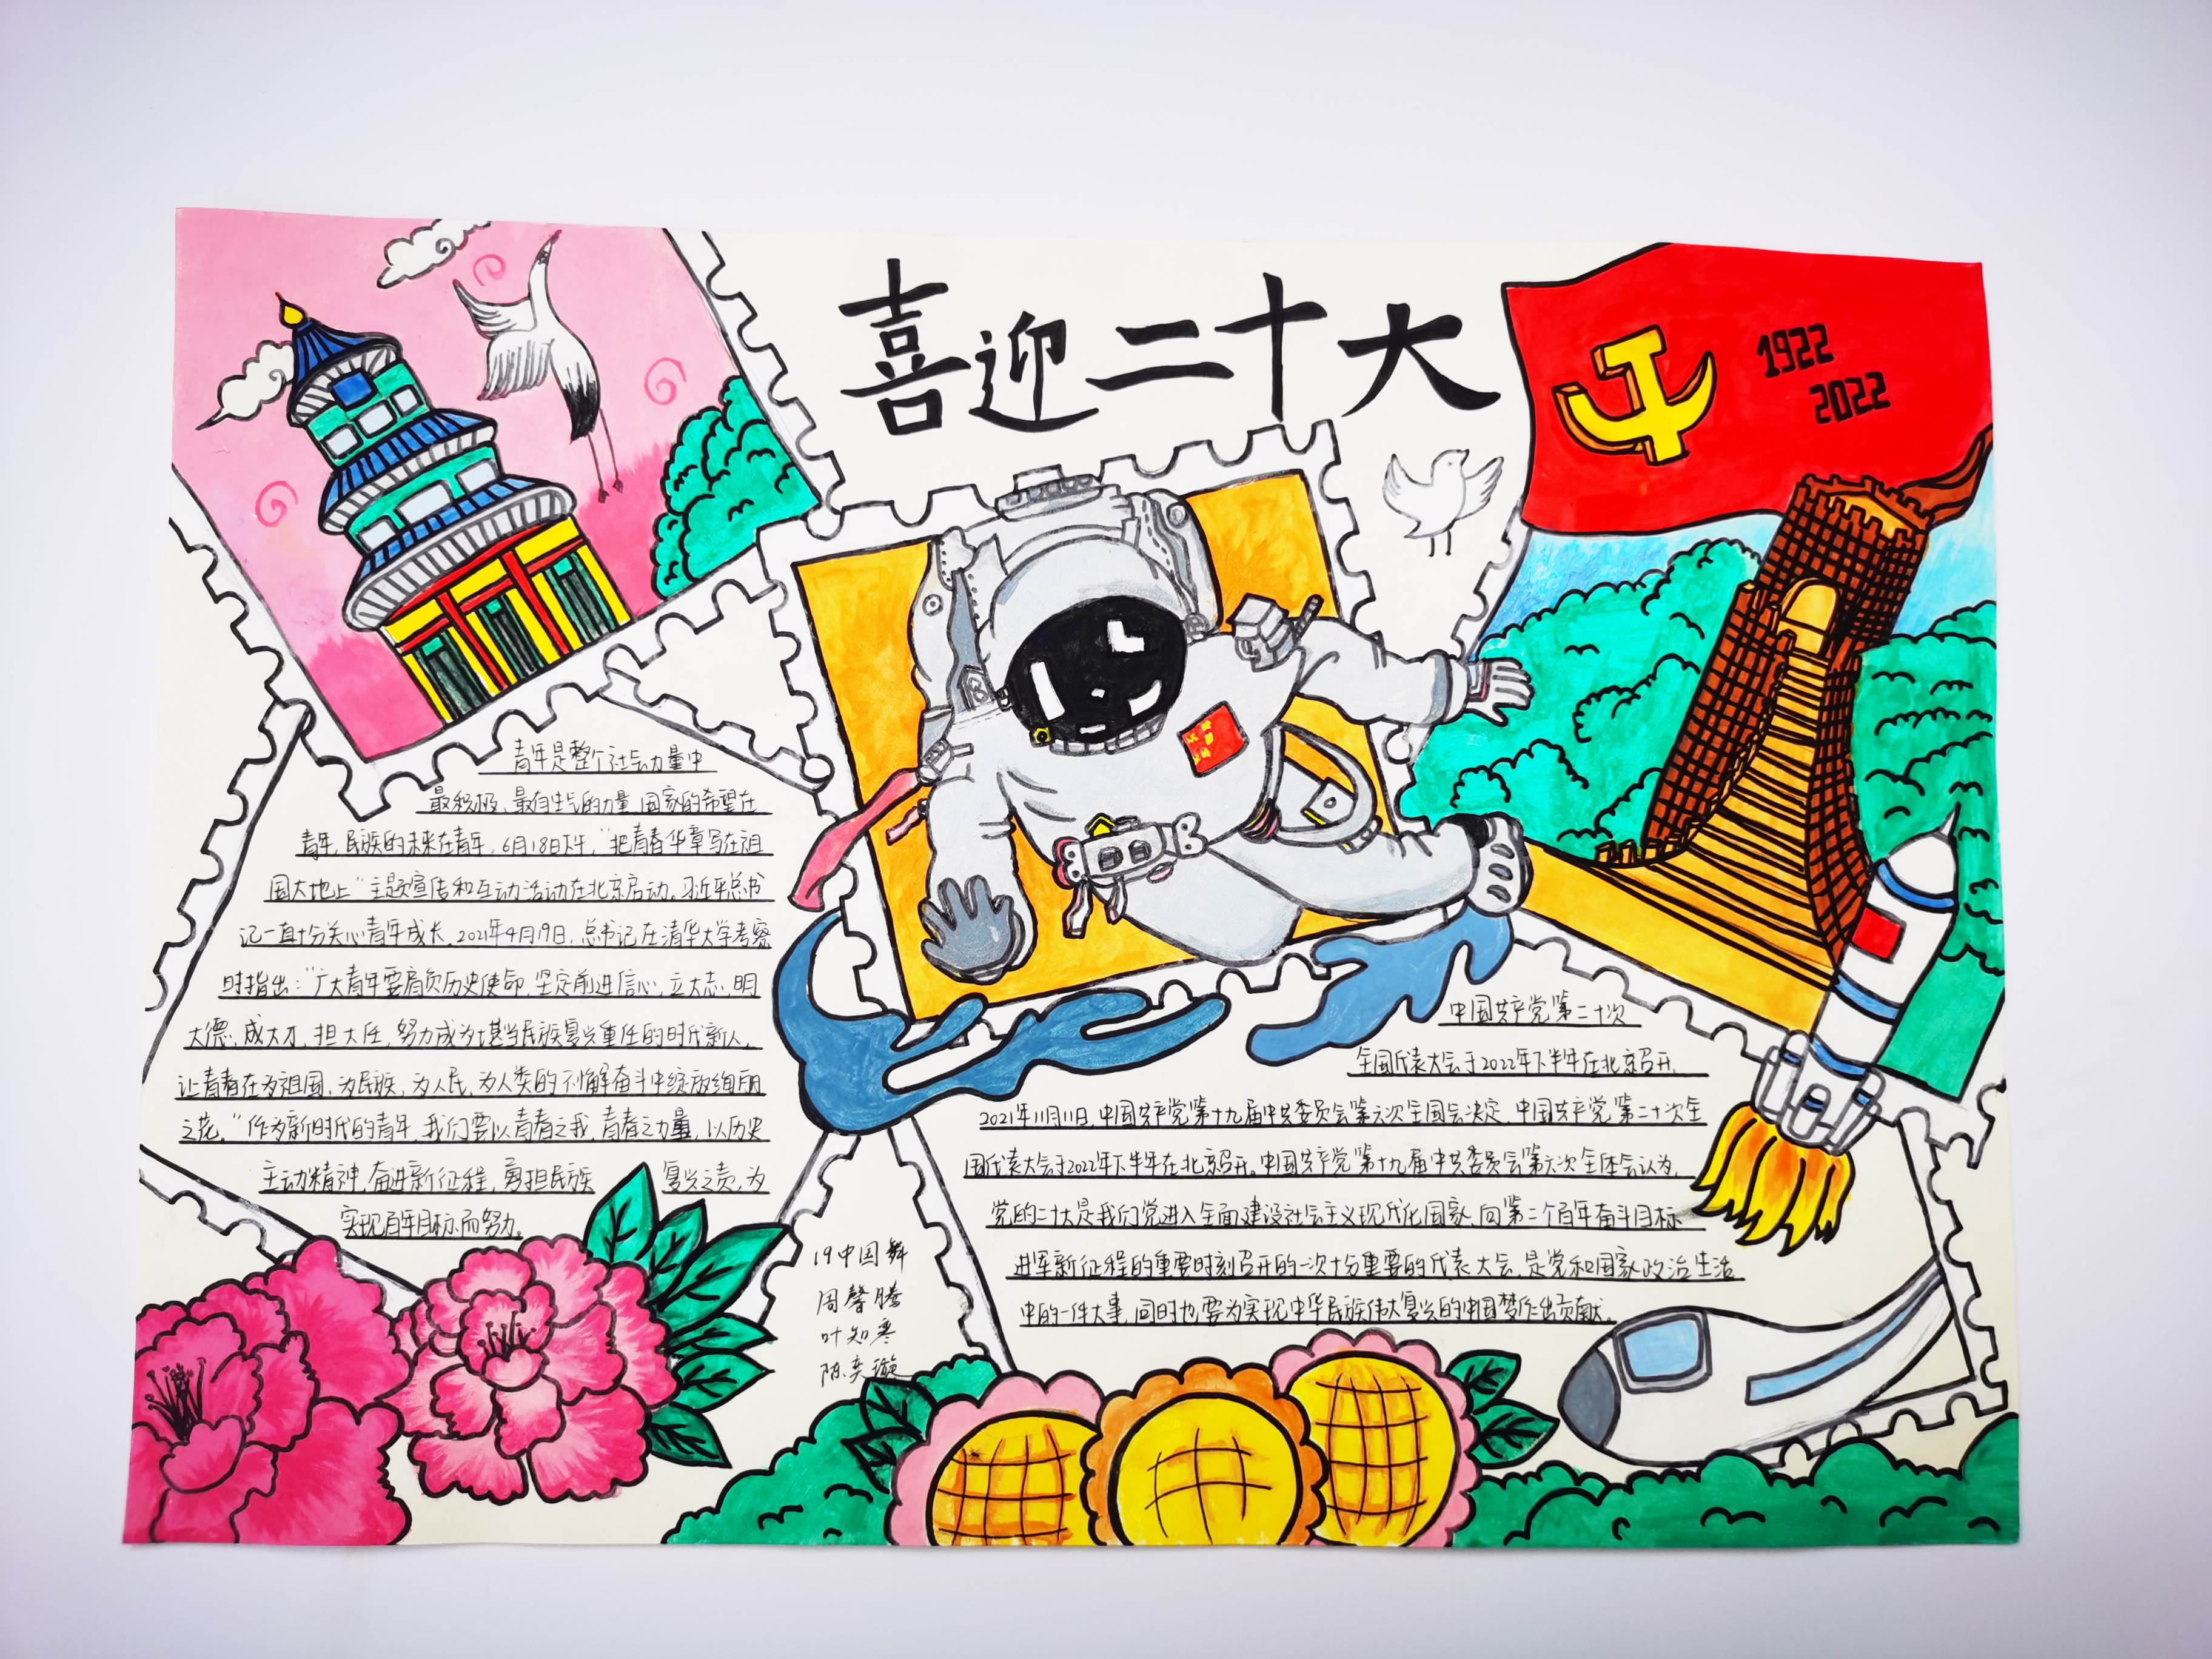 喜迎二十大
1922
2022
青年是整个社会力量中
最积极、最有生气的力量,国家的希望在
青年,民族的未来在青年。6月18日下午,“把青春华章写在祖
国大地上”主题宣传和互动活动在北京启动。习近平总书
记一直十分关心青年成长,2021年4月19日,总书记在清华大学考察
时指出:“广大青年要肩负历史使命,坚定前进信心,立大志、明
大德、成大才、担大任,努力成为堪当民族复兴重任的时代新人,
让青春在为祖国、为民族、为人民、为人类的不懈奋斗中绽放绚丽
之花。”作为新时代的青年,我们要以青春之我,青春之力量,以历史
主动精神,奋进新征程,勇担民族复兴之责,为
实现百年目标而努力。
中国共产党第二十次
全国代表大会于2022年下半年在北京召开,
2021年11月11日,中国共产党第十九届中共委员会第六次全国会决定,中国共产党第二十次全
国代表大会于2022年下半年在北京召开。中国共产党第十九届中共委员会第六次全体会认为,
党的二十大是我们党进入全面建设社会主义现代化国家、向第二个百年奋斗目标
进军新征程的重要时刻召开的一次十分重要的代表大会,是党和国家政治生活
中的一件大事,同时也要为实现中华民族伟大复兴的中国梦作出贡献。
19中国舞
周馨腾
叶知寒
陈奕璇